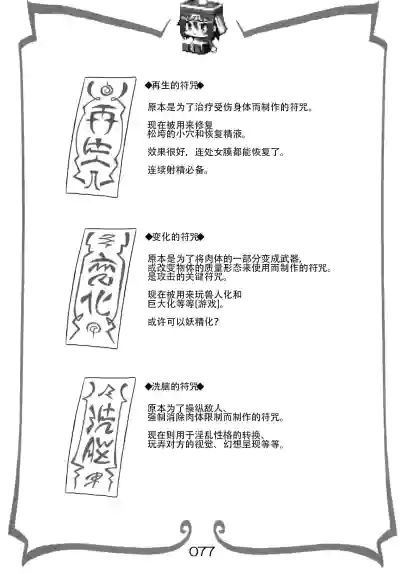 ◆再生的符咒◆
原本是为了治疗受伤身体而制作的符咒。
现在被用来修复
松垮的小穴和恢复精液。
效果很好，连处女膜都能恢复了。
连续射精必备。
再生
◆变化的符咒◆
原本是为了将肉体的一部分变成武器，
或改变物体的质量形态来使用而制作的符咒。
是攻击的关键符咒。
现在被用来玩兽人化和
巨大化等等[游戏]。
或许可以妖精化？
変化
◆洗脑的符咒◆
原本为了操纵敌人、
强制消除肉体限制而制作的符咒。
现在则用于淫乱性格的转换、
玩弄对方的视觉、幻想呈现等等。
洗脳
077